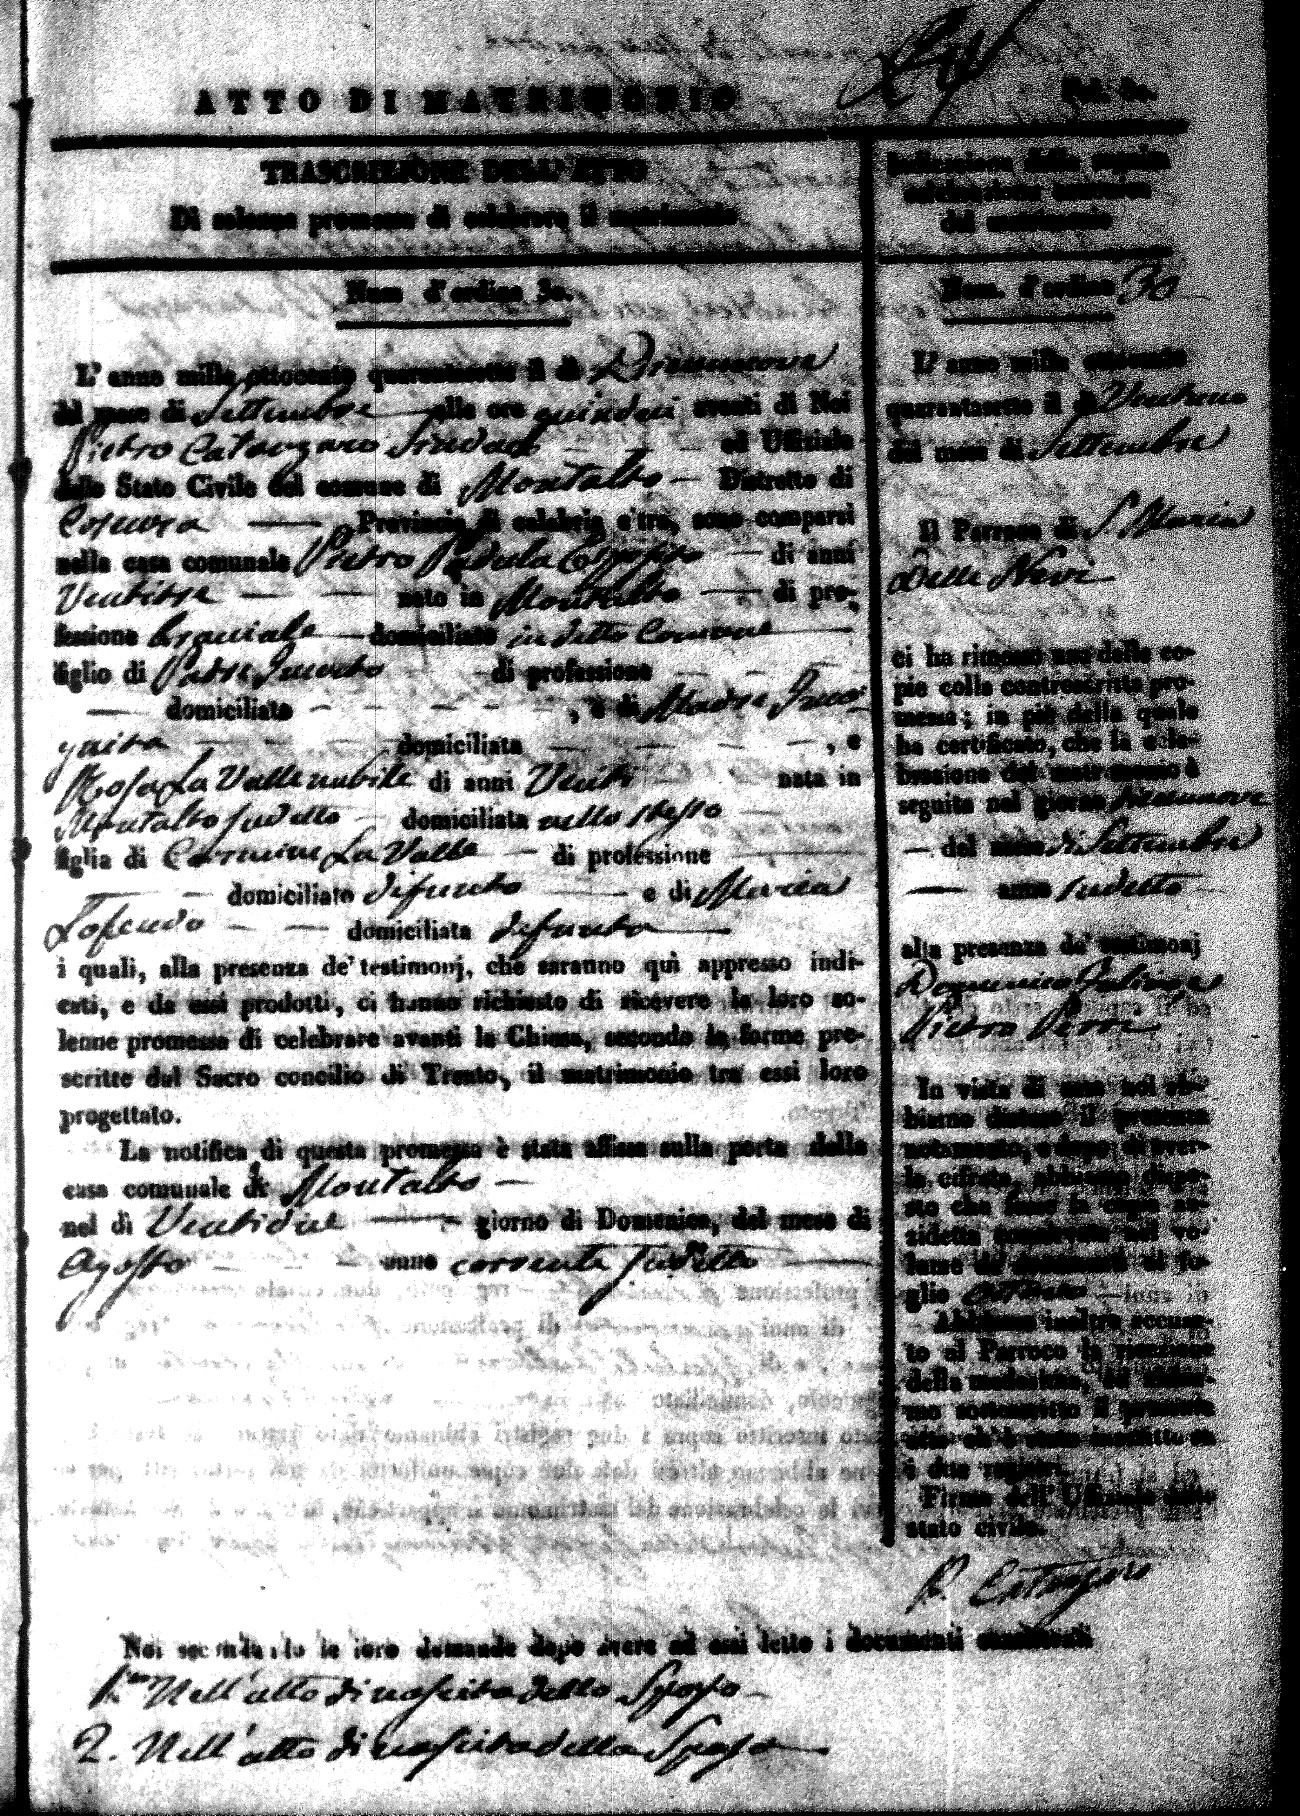 ATTO DI MATRIMONIO
Fol. 30.
TRASCRIZIONE DELL' ATTO
Di solenne promessa di celebrare il matrimonio
Num d'ordine 30.
L' anno mille ottocento quarantasette il dì Diciannove
del mese di Settembre alle ore quindeci avanti di Noi
Pietro Catanzaro Sindaco ed Uffiziale
dello Stato Civile del comune di Montalto Distretto di
Cosenza Provincia di calabria citra, sono comparsi
nella casa comunale Pietro Padula Esposito di anni
Ventitre nato in Montalto di pro-
fessione domiciliato in detto Comune
figlio di Padre Incerto di professione
domiciliato , e di Madre Inco
gnita domiciliata , e
Rosa La Valle nubile di anni Venti nata in
Montalto sudetto domiciliata nello stesso
figlia di Carmine La Valle di professione
domiciliato difunto e di Maria
domiciliata defunta
i quali, alla presenza de' testimonj, che saranno quì appresso indi-
cati, e da essi prodotti, ci hanno richiesto di ricevere la loro so-
lenne promessa di celebrare avanti la Chiesa, secondo le forme pre-
scritte dal Sacro concilio di Trento, il matrimonio tra essi loro
progettato.
La notifica di questa promessa è stata affissa sulla porta della
casa comunale di Montalto
nel dì Ventidue giorno di Domenica, del mese di
Agosto anno corrente sudetto
Noi secondando le loro domande dopo avere ad essi letto i documenti
1.mo Nell'atto di nascita dello Sposo
2. Nell'atto di nascita della Sposa
Indicazione della seguita
celebrazione canonica
del matrimonio
Num. d'ordine 30
L' anno mille ottocento
quarantasette il dì Ventuno
del mese di Settembre
Il Parroco di S. Maria
Delle Nevi
ci ha rimesso una delle co-
pie della controscritta pro-
messa; in piè della quale
ha certificato, che la cele-
brazione del matrimonio è
seguita nel giorno diciannove
del mese di Settembre
anno sudetto
alla presenza de' testimonj
Domenico
Pietro Perri
In vista di esse noi ab-
biamo disteso il presente
notamento, e dopo di aver-
la cifrata, abbiamo dispo-
sto che fosse la copia an-
zidetta conservata nel vo-
lume de' documenti al fo-
glio
Abbiamo inoltre accusa-
to al Parroco la ricezione
della medesima, ed abbia-
mo sottoscritto il presente
atto ch'è stato inscritto su
i due registri.
Firma dell' Uffiziale dello
stato civile.
P. Catanzaro